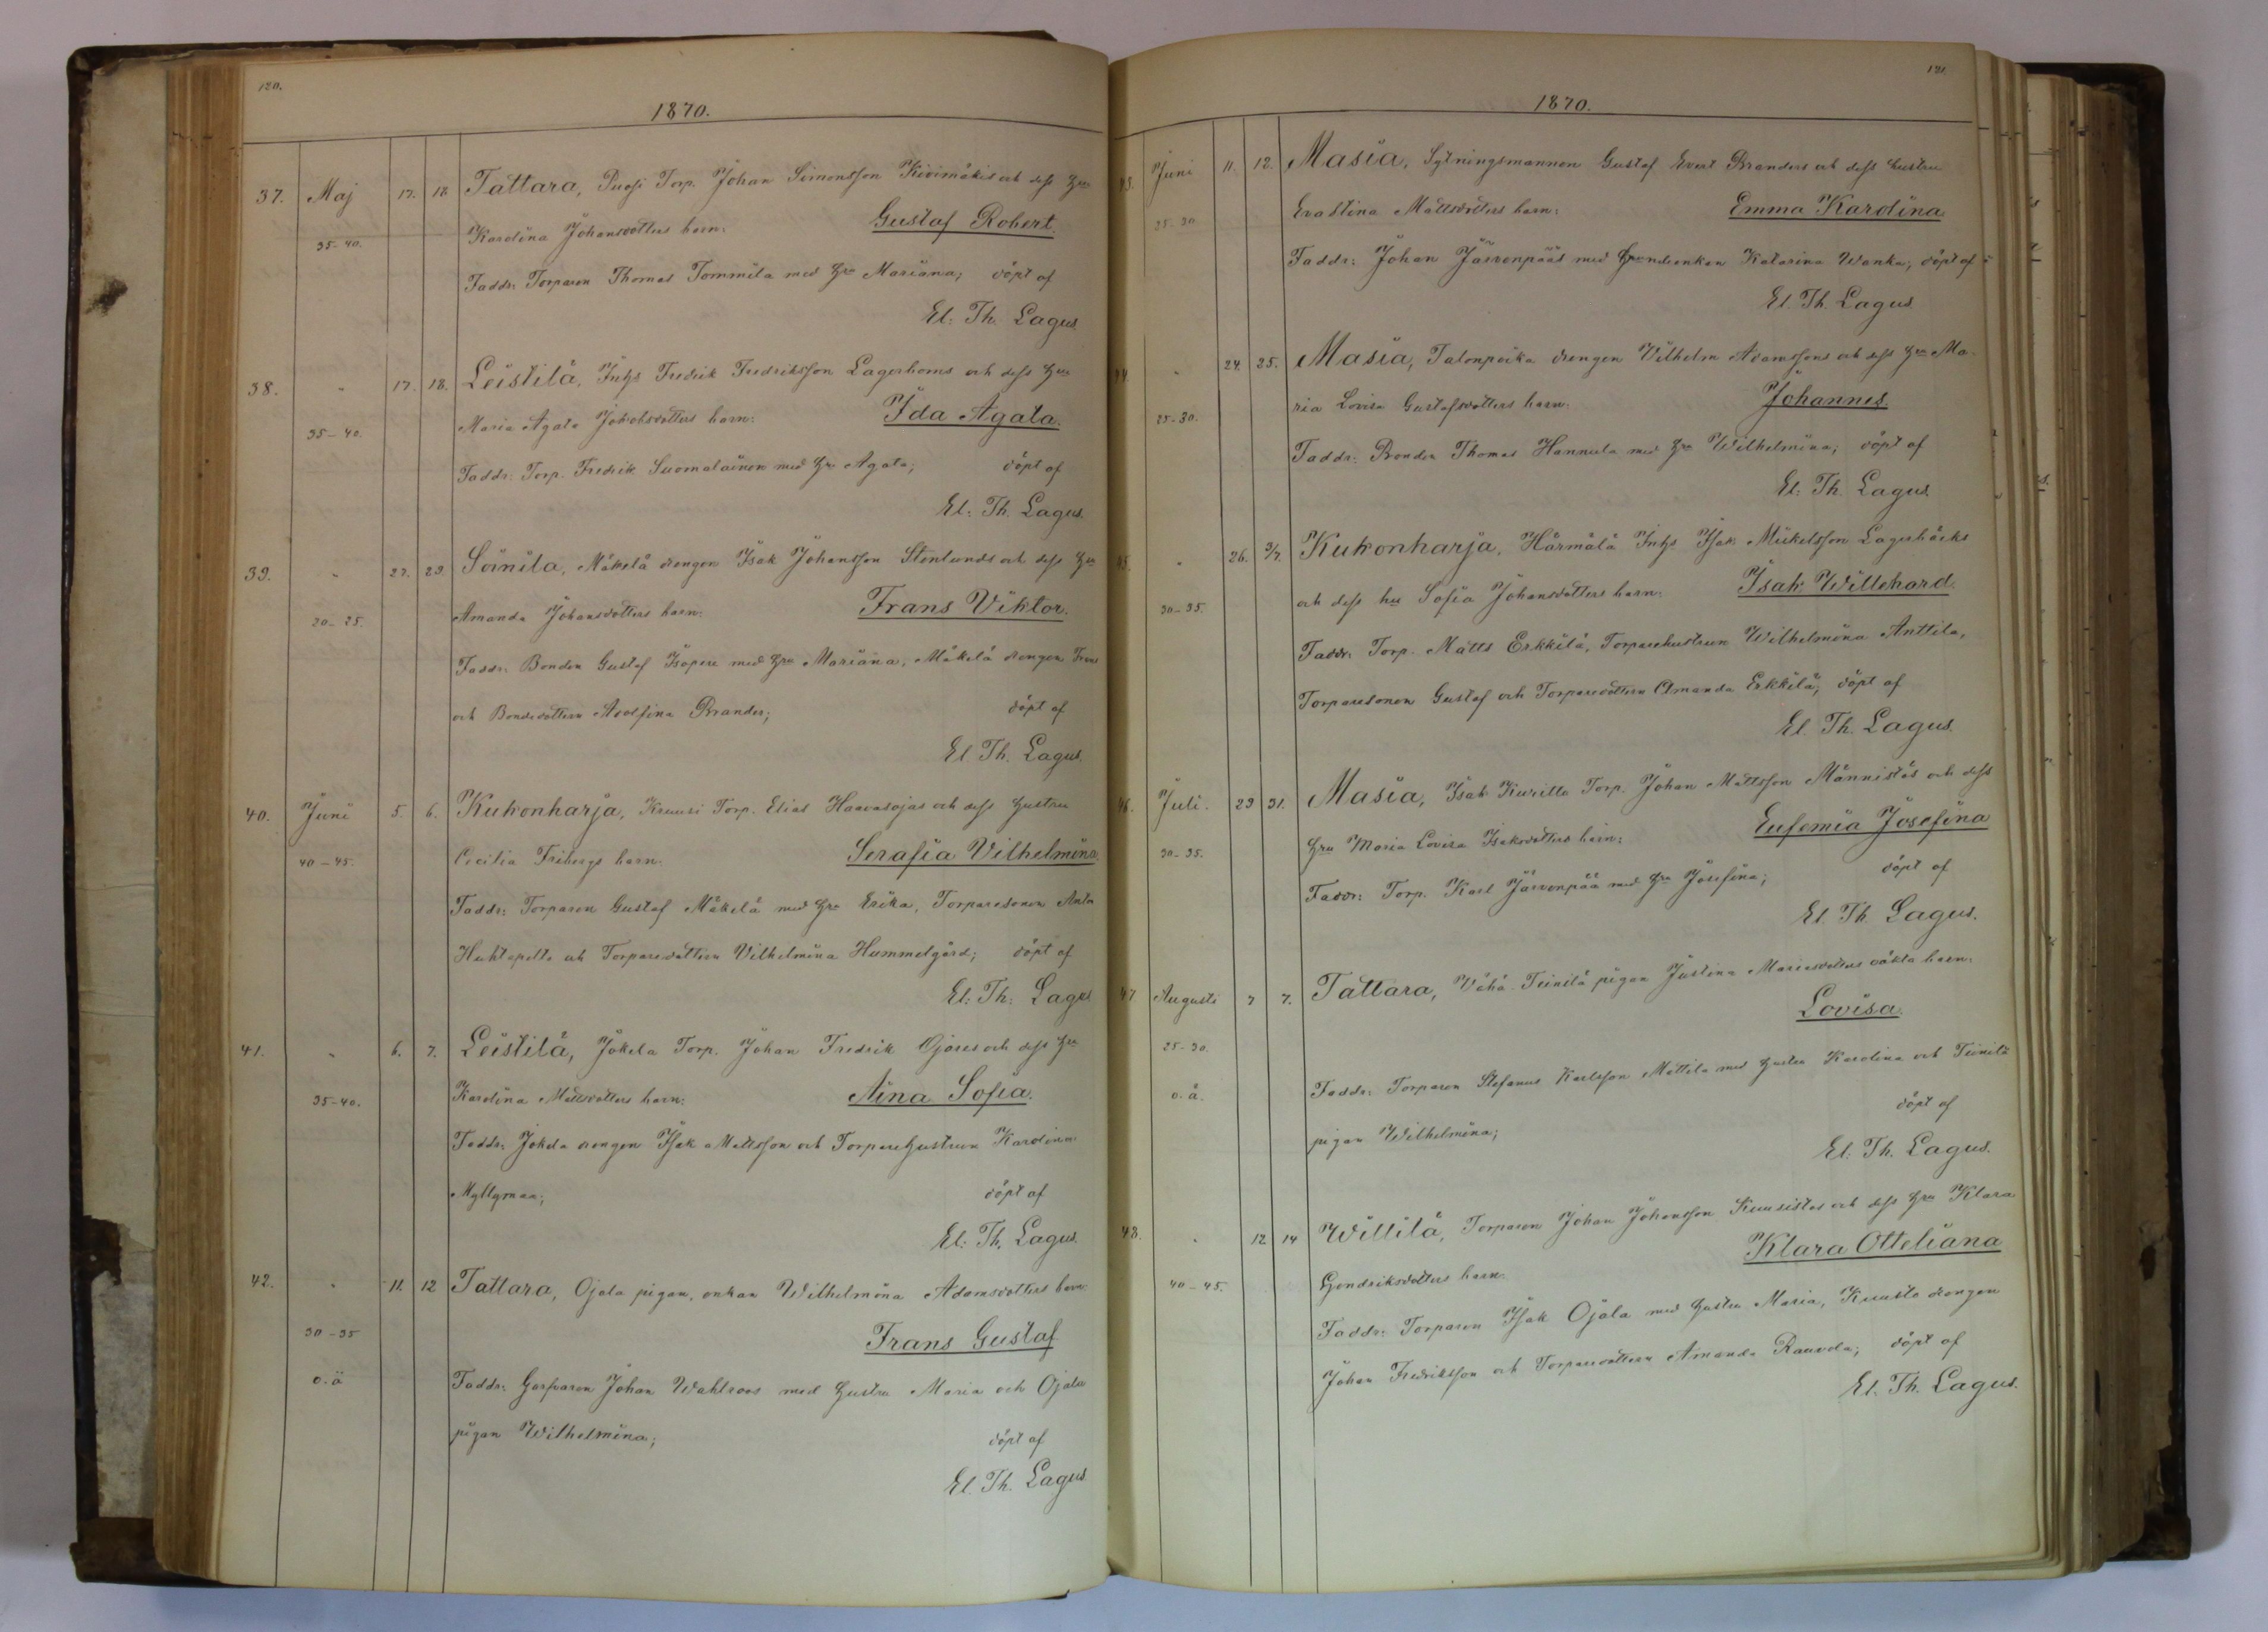 120.
1870.
37. Maj 17. 18. Tattara, Puosi Torp. Johan Simonsson Kivimäkis och dess Hru
35-40. Karolina Johansdotters barn: Gustaf Robert.
Faddr: Torparen Thomas Tommila med Hru Mariana; döpt af
El: Th. Lagus.
38. " 17. 18. Leistilä, Inhs Fredrik Fredriksson Lagerboms och dess Hru
35-40. Maria Agata Jakobsdotters barn: Ida Agata.
Faddr: Torp. Fredrik Suomalainen med Hru Agata; döpt af
El: Th. Lagus.
39. " 27. 29. Soinila, Mäkelä drengen Isak Johansson Stenlunds och dess Hru
20-25. Amanda Johansdotters barn: Frans Viktor.
Faddr: Bonden Gustaf Isopere med Hru Mariana, Mäkelä drengen Frans
och Bondedottern Adolfina Brander; döpt af
El Th. Lagus.
40. Juni 5. 6. Kukonharja, Kruusi Torp. Elias Haavasojas och dess Hustru
40-45. Cecilia Fribergs barn: Serafia Vilhelmina.
Faddr: Torparen Gustaf Mäkelä med Hru Erika, Torparesonen Anto
Huhtapelto och Torparedottern Vilhelmina Hummelgård; döpt af
El: Th: Lagus
41. " 6. 7. Leistilä, Jokela Torp. Johan Fredrik Ojares och dess Hru
35-40. Karolina Mattsdotters barn: Aina Sofia.
Faddr: Jokela drengen Isak Mattsson och Torparehustrun Karolina
Myllymaa; döpt af
El: Th. Lagus.
42. " 11. 12 Tattara, Ojala pigan, enkan Wilhelmina Adamsdotters barn:
30-35 Frans Gustaf
o.ä Faddr: Garfvaren Johan Wahlroos med Hustru Maria och Ojala
pigan Wilhelmina; döpt af
El. Th. Lagus
121.
1870.
43. Juni 11. 12. Masia, Sytningsmannen Gustaf Evert Branders och dess hustru
25-30 Evastina Mattsdotters barn: Emma Karolina.
Faddr: Johan Järvenpää med Hru enkan Katarina Wanka; döpt af
El. Th. Lagus
44. " 24. 25. Masia, Talonpoika drengen Vilhelm Adamssons och dess Hru Ma-
25-30. ria Lovisa Gustafsdotters barn: Johannes.
Faddr: Bonden Thomas Hannula med Hru Wilhelmina; döpt af
El: Th. Lagus
45. " 26. 3/7. Kukonharja, Härmälä Inhs Isak Mickelsson Lagerbäcks
30-35. och dess hu Sofia Johansdotters barn: Isak Willehard.
Faddr: Torp. Matts Erkkilä, Torparehustrun Wilhelmina Anttila,
Torparesonen Gustaf och Torparedottern Amanda Erkkilä; döpt af
El. Th. Lagus.
46. Juli. 29 31. Masia, Isak Kurilla Torp. Johan Mattsson Männistös och dess
30-35. Hru Maria Lovisa Isaksdotters barn: Eufemia Josefina
Faddr: Torp. Karl Järvenpää med Hru Josefina; döpt af
El. Th. Lagus.
47 Augusti 7 7. Tattara, Vähä-Teinilä pigan Justina Mariasdotters oäkta barn:
Lovisa.
25-30. Faddr: Torparen Stefanus Karlsson Mattila med Hustru Karolina och Teinilä
o.ä. pigan Wilhelmina; döpt af
El: Th. Lagus.
48. " 12 14 Willilä, Torparen Johan Johansson Kuusistos och dess Hru Klara
40-45. Hendriksdotters barn: Klara Otteliana
Faddr: Torparen Isak Ojala med Hustru Maria, Kuusto drengen
Johan Fredriksson och Torparedottern Amanda Rauvola; döpt af
El. Th. Lagus.